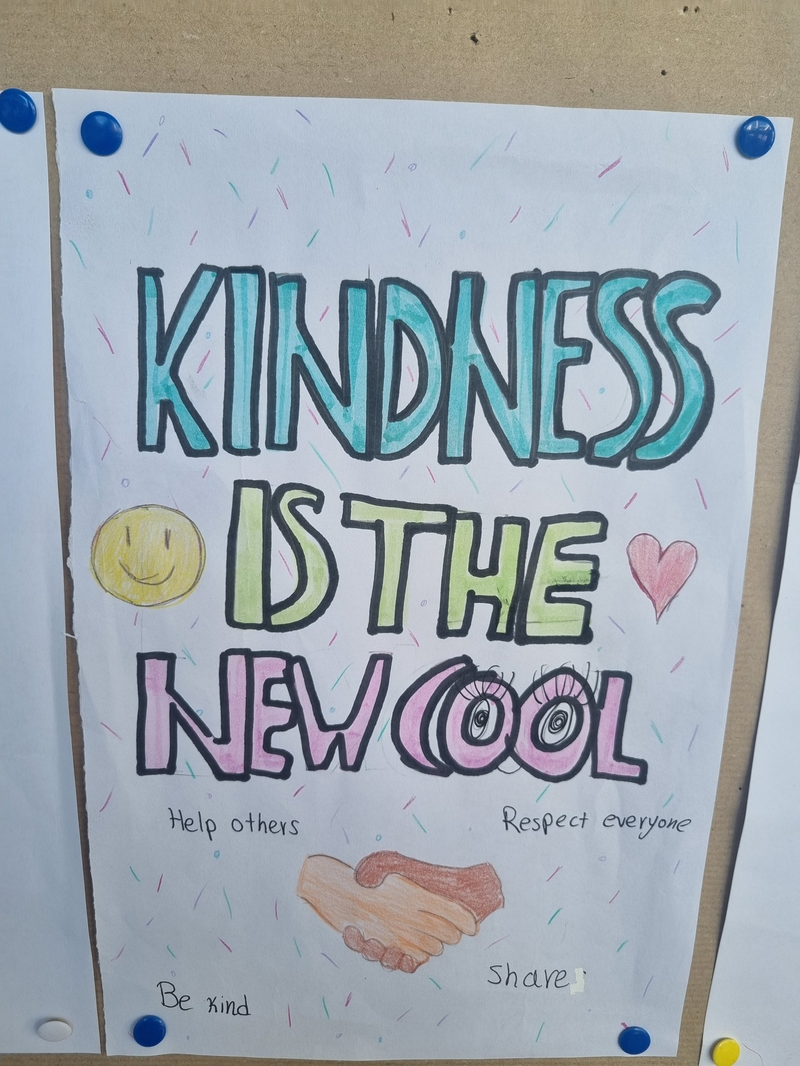 KINDNESS
IS THE
NEW COOL
Help others
Respect everyone
Share
Be kind